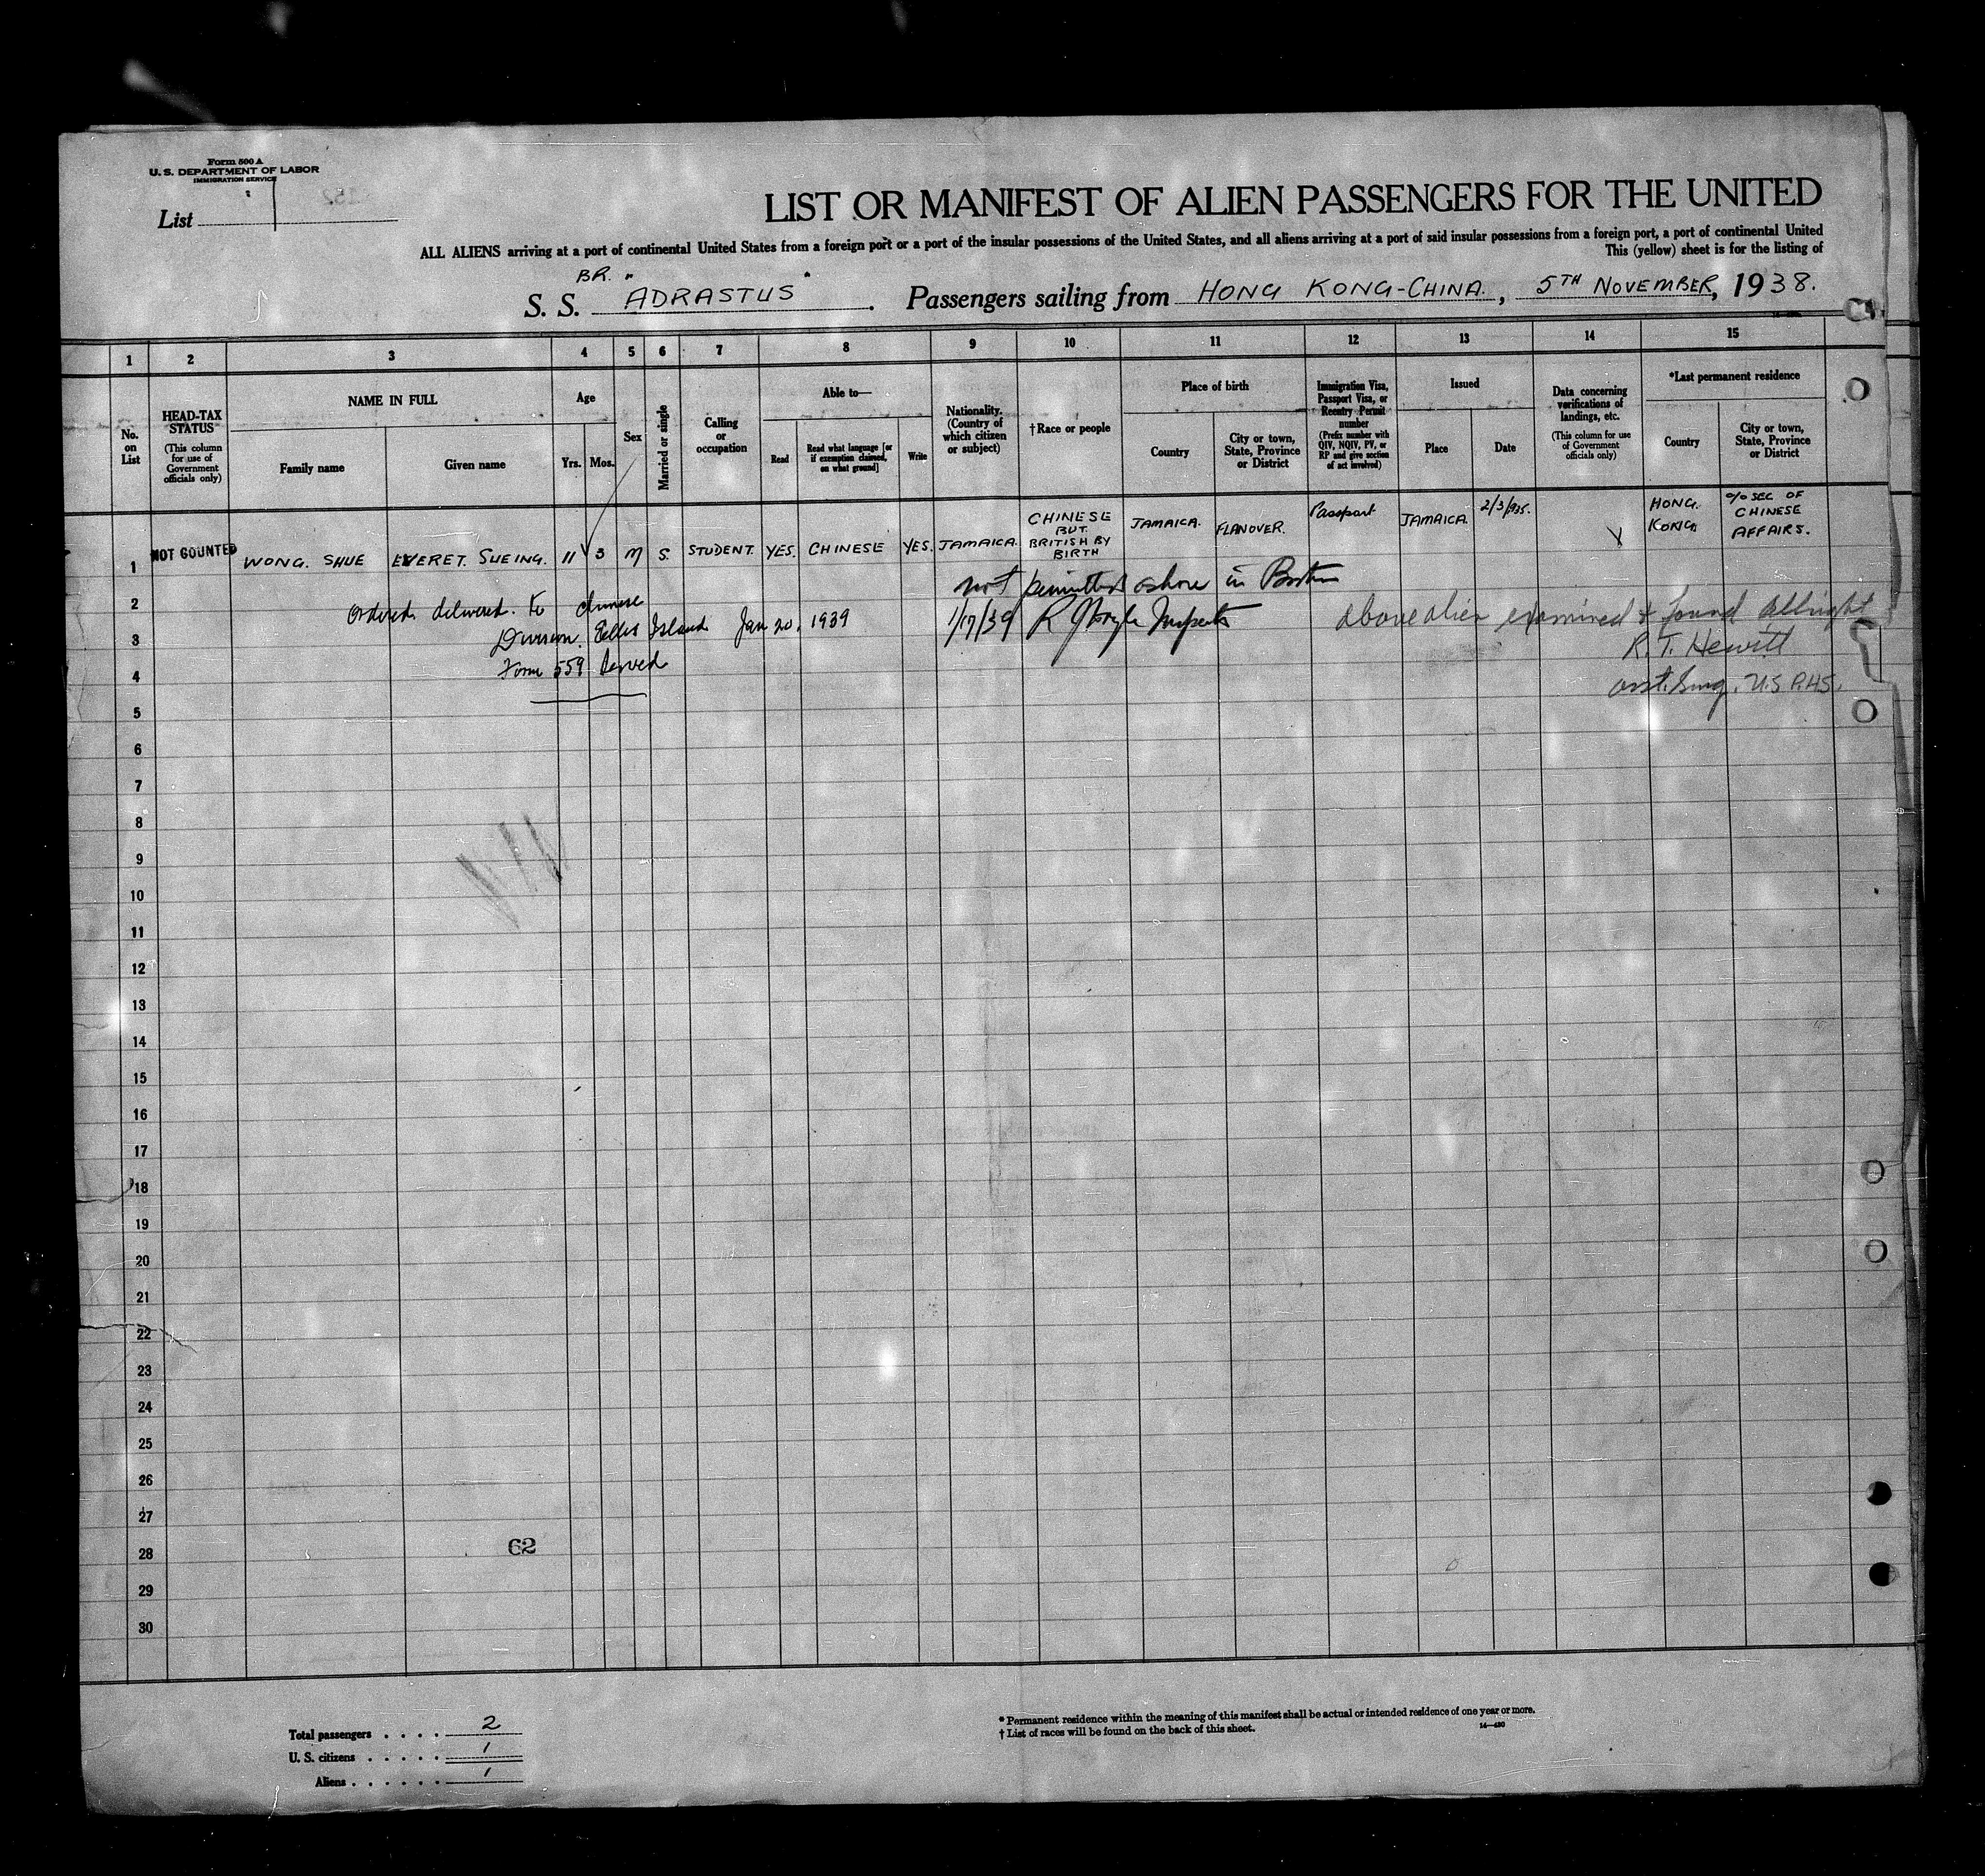 Form 500 A
U. S. DEPARTMENT OF LABOR
IMMIGRATION SERVICE
List 1
LIST OR MANIFEST OF ALIEN PASSENGERS FOR THE UNITED
ALL ALIENS arriving at a port of continental United States from a foreign port or a port of the insular possessions of the United States, and all aliens arriving at a port of said insular possessions from a foreign port, a port of continental United
This (yellow) sheet is for the listing of
S. S. BR. "ADRASTUS". Passengers sailing from HONG KONG-CHINA., 5TH NOVEMBER, 1938.
1 2 3 4 5 6 7 8 9 10 11 12 13 14 15
No. on List
HEAD-TAX STATUS
(This column for use of Government officials only)
NAME IN FULL
Family name
Given name
Age
Yrs.
Mos.
Sex
Married or single
Calling or occupation
Able to—
Read
Read what language [or if exemption claimed, on what ground]
Write
Nationality. (Country of which citizen or subject)
†Race or people
Place of birth
Country
City or town, State, Province or District
Immigration Visa, Passport Visa, or Reentry Permit number
(Prefix number with QIV, NQIV, PV, or RP and give section of act involved)
Issued
Place
Date
Data concerning verifications of landings, etc.
(This column for use of Government officials only)
*Last permanent residence
Country
City or town, State, Province or District
1 NOT COUNTED WONG. SHUE EVERET. SUEING. 11 3 M S. STUDENT. YES. CHINESE YES. JAMAICA. CHINESE BUT BRITISH BY BIRTH JAMAICA. FLANOVER. Passport JAMAICA. 2/3/935. HONG. KONG. c/o SEC OF CHINESE AFFAIRS.
not permitted ashore in Boston
1/17/39 Inspector
Ordered delivered to Chinese
Division. Ellis Island Jan 20, 1939
Form 559 served
above alien examined & found allright
R. T. Hewitt
asst. Surg. U.S P.H.S.
2
3
4
5
6
7
8
9
10
11
12
13
14
15
16
17
18
19
20
21
22
23
24
25
26
27
28
29
30
62
Total passengers . . . . 2
U. S. citizens . . . . . 1
Aliens . . . . . . 1
* Permanent residence within the meaning of this manifest shall be actual or intended residence of one year or more.
† List of races will be found on the back of this sheet.
14—480